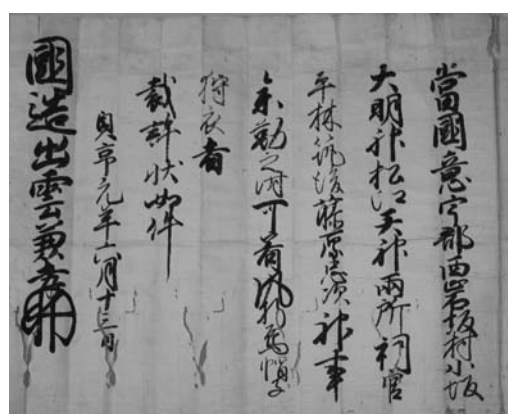 當國意宇郡西岩坂村小坂
大明神松江天神兩所祠官
平林筑後藤原忠次神事
参勤之時可着風折烏帽子
狩衣者
裁許状如件
貞享元年六月十三日
國造出雲兼孝